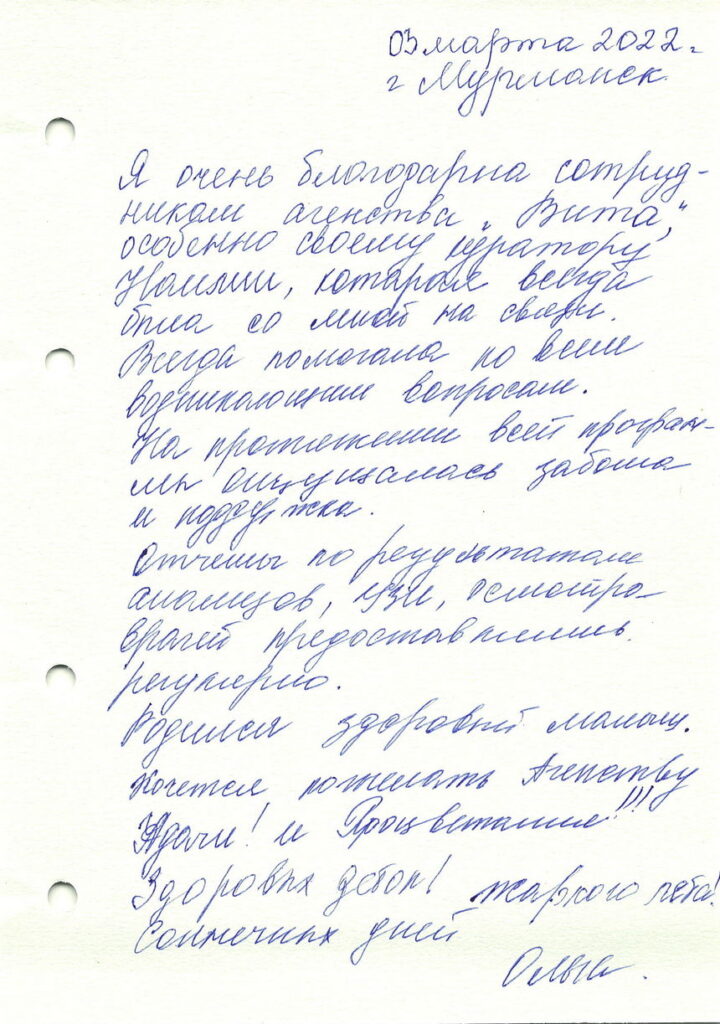 03 марта 2022 г.
г Мурманск.
Я очень благодарна сотруд-
никам агенства „Вита",
особенно своему куратору
Наилии, которая всегда
была со мной на связи.
Всегда помогала по всем
возникающим вопросам.
На протяжении всей програм-
мы ощущалась забота
и поддержка.
Отчеты по результатам
анализов, УЗИ, осмотра
врачей предоставлялись
регулярно.
Родился здоровый малыш.
Хочется пожелать Агенству
Удачи! и Процветания!!!
Здоровых деток! жаркого лета!
Солнечных дней
Ольга.